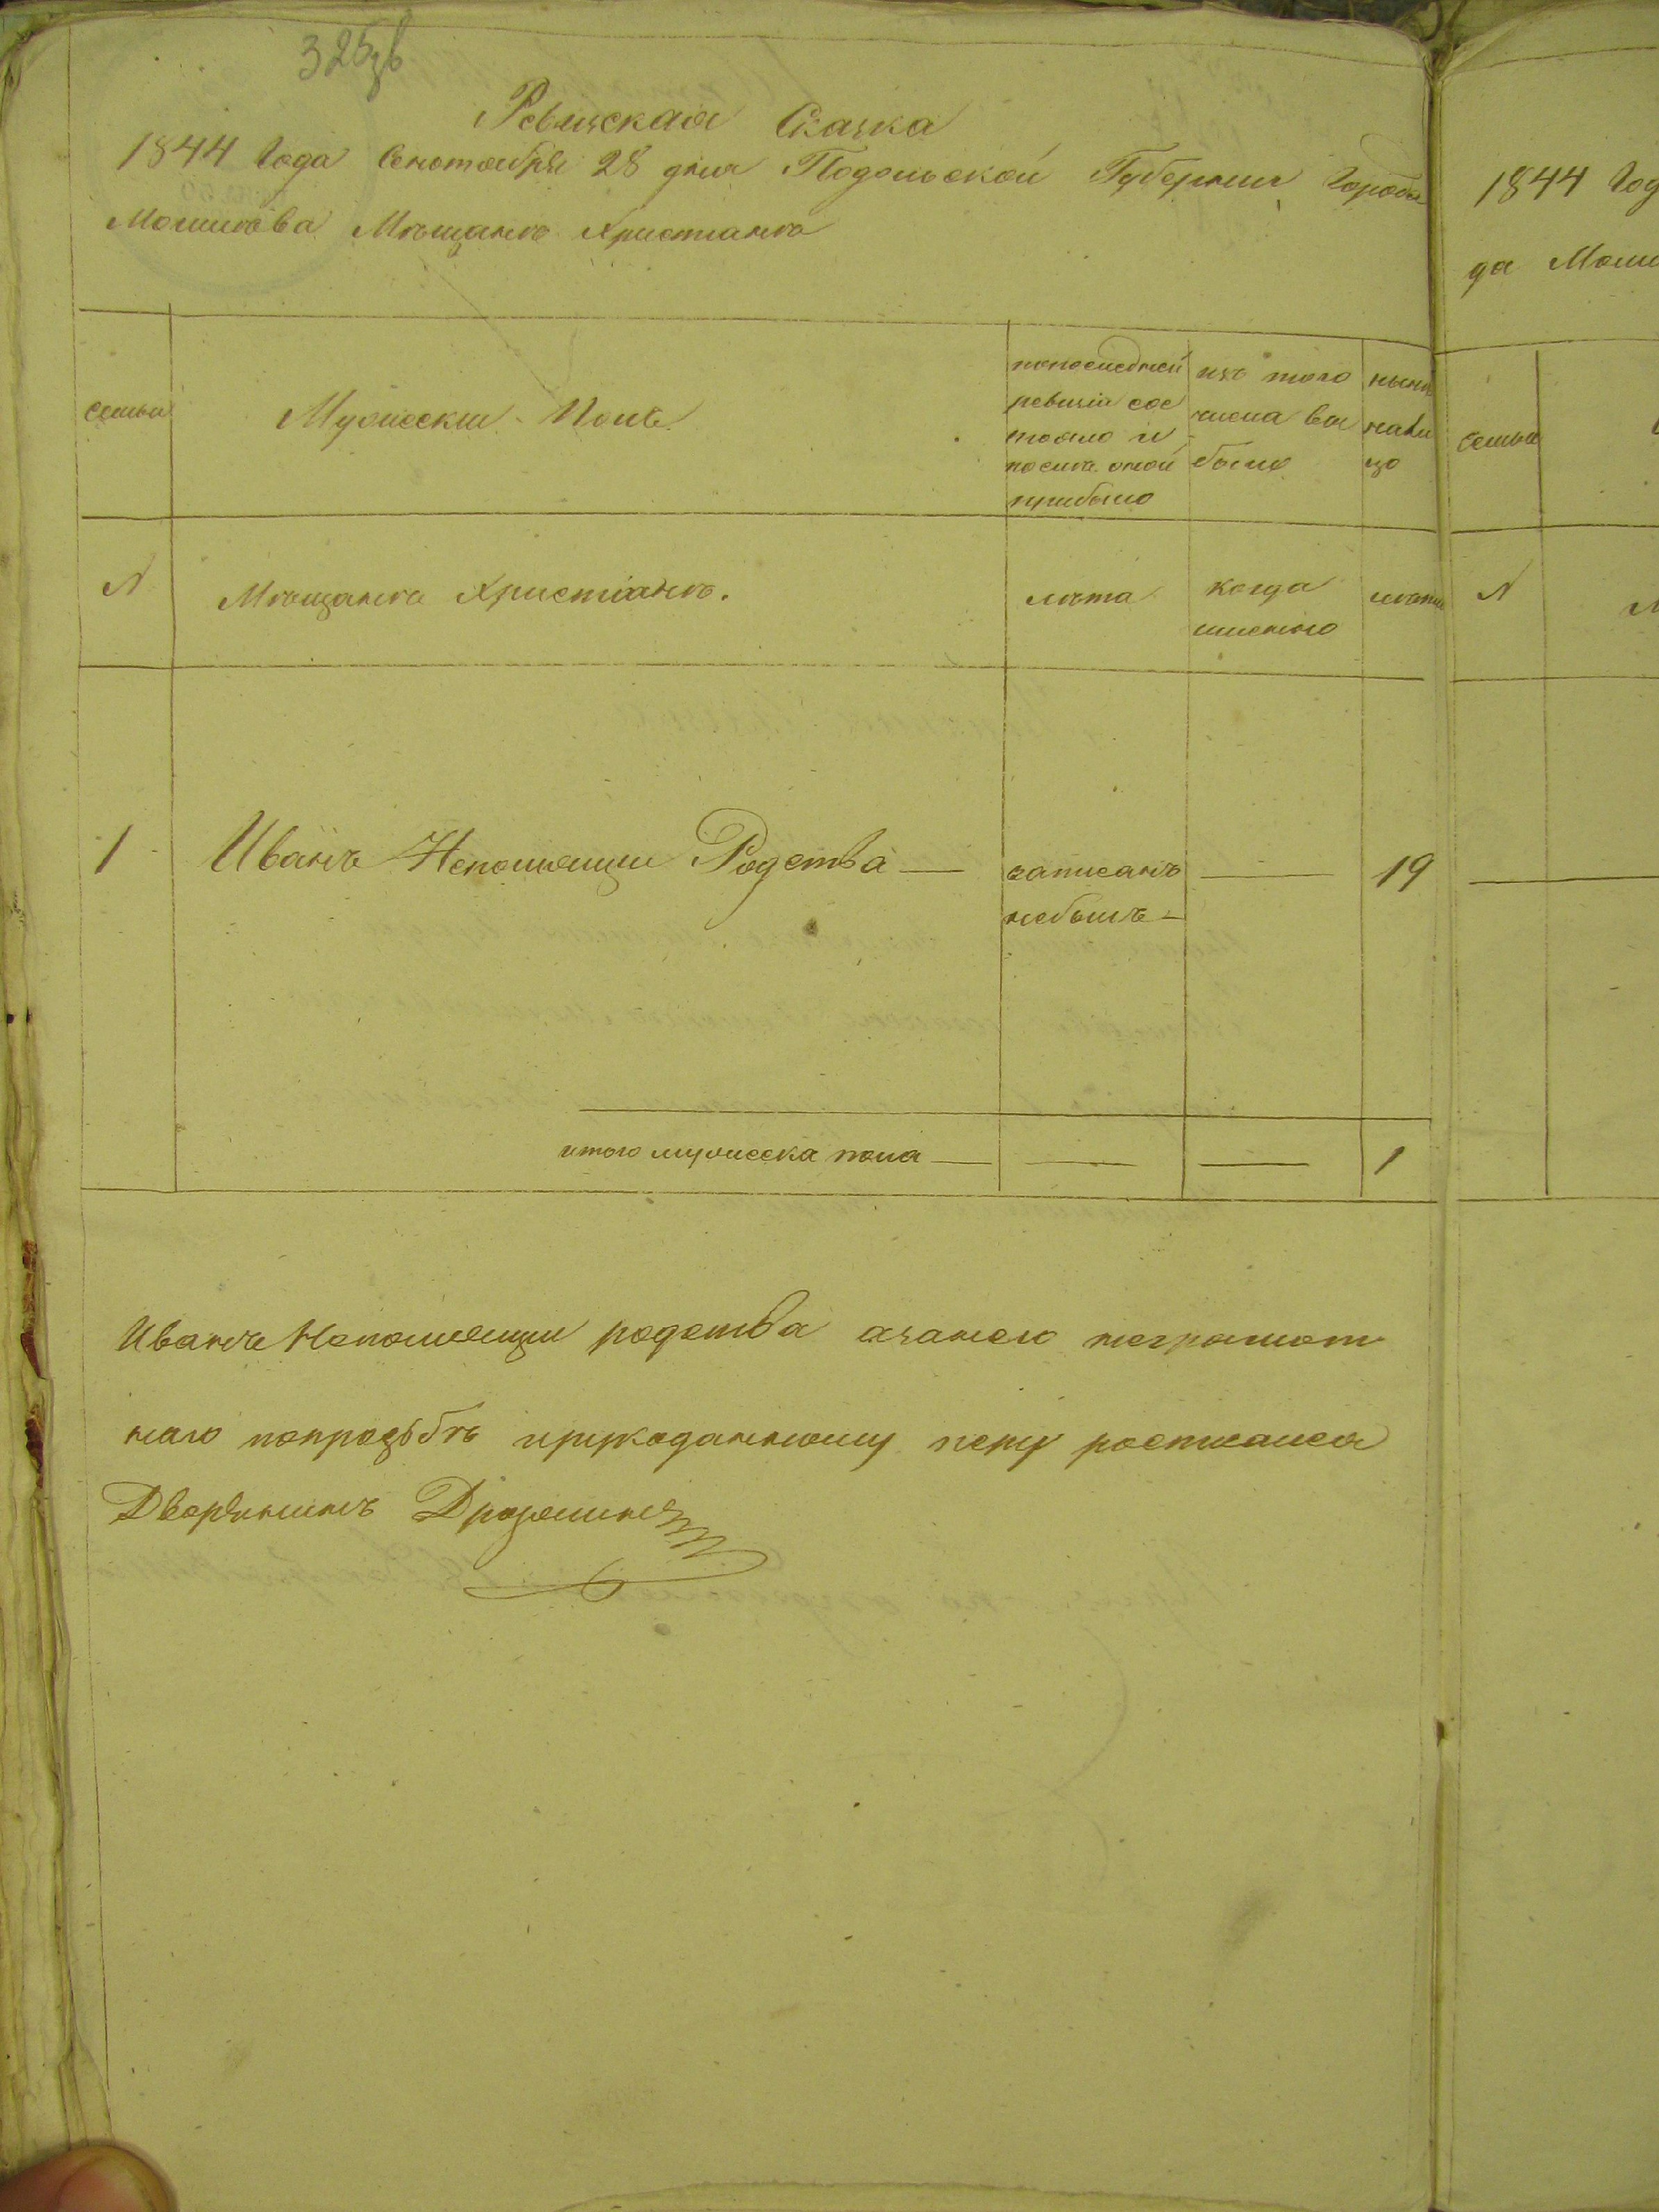 325зв
Ревизская Сказка
1844 Года Сентября 28 дня Подольской Губернии Города
Могилева Мѣщанъ Христианъ
семьи
Мужеский Полъ
попоследней
ревизіи сос
тояло и
послѣ оной
прибыло
изъ того
числа вы
было
нынѣ
нали
цо
№
Мѣщанъ Христіанъ.
лѣта
когда
именно
лѣта
1
Иванъ Непомнящи Родства
записанъ
небылъ
19
итого мужеска пола
1
Иванъ Непомнящи родства азанего неграмот
наго попрозьбѣ ирукоданному перу росписался
Дворянинъ
1844 Год
да Моги
семьи
№